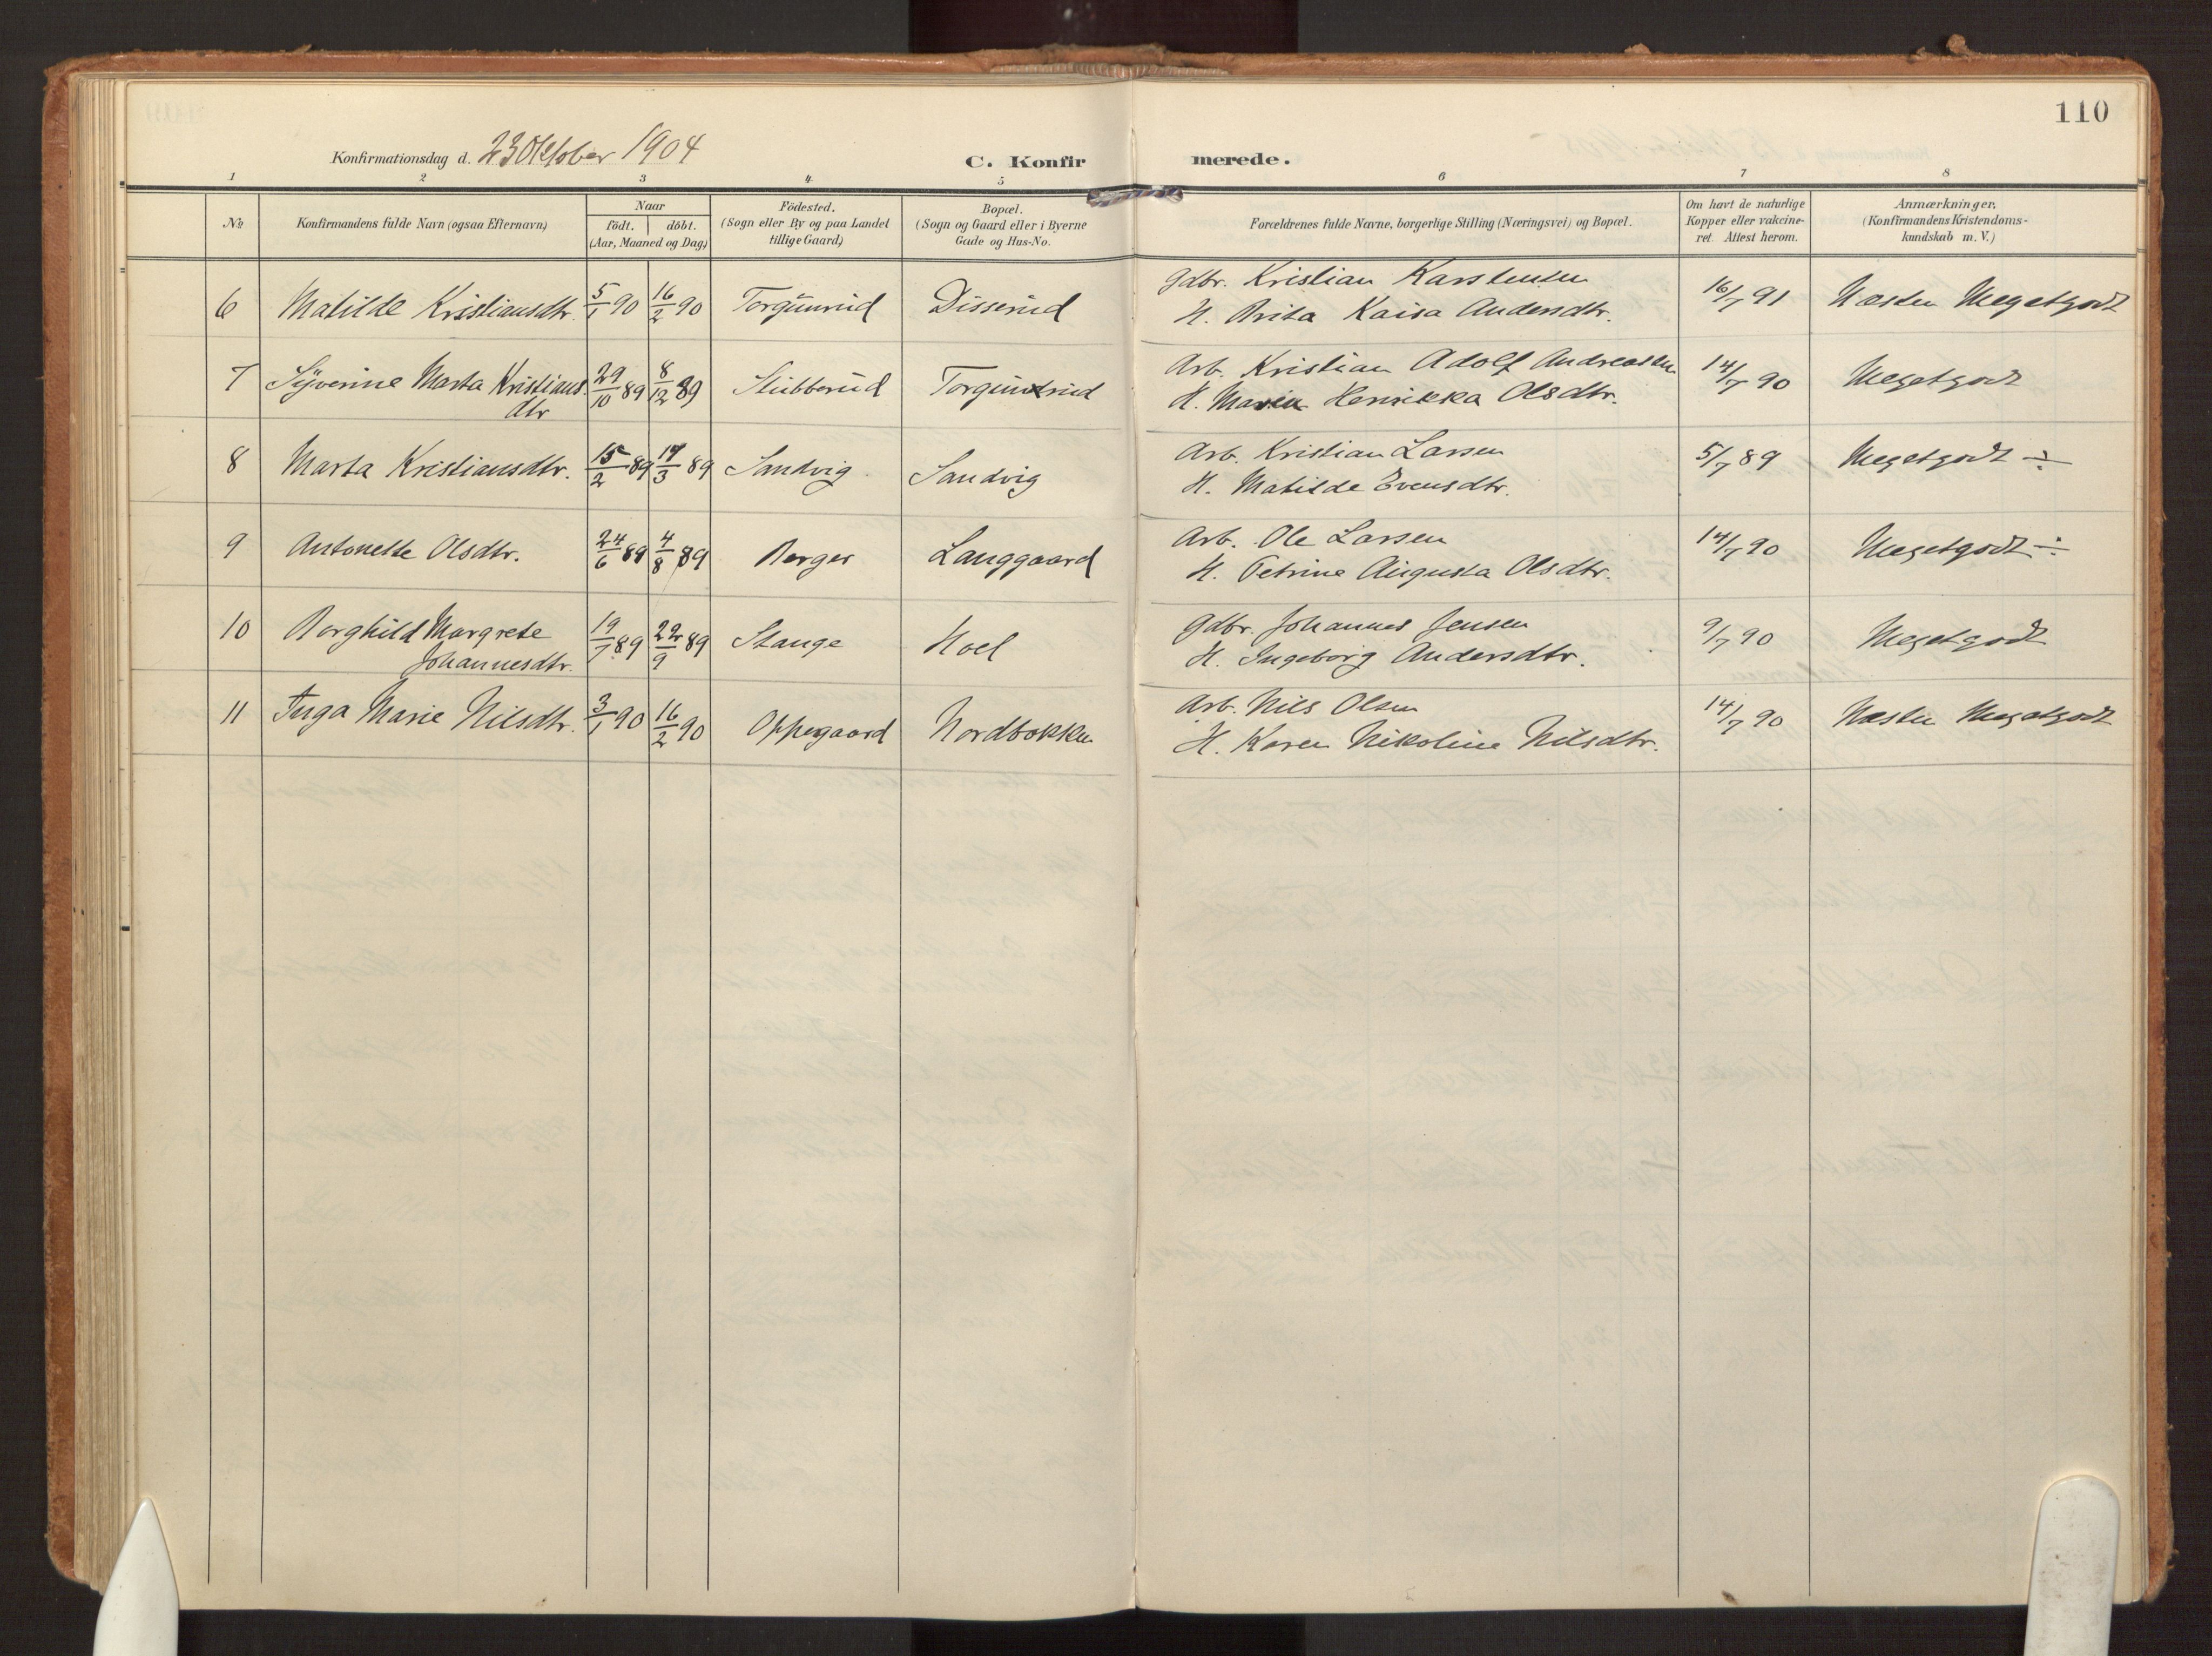 110
Konfirmationsdag d. 23 Oktober 1904
C. Konfirmerede.
1 2 3 4 5 6 7 8
No
Konfirmandens fulde Navn (ogsaa Efternavn)
Naar
födt. döbt.
(Aar, Maaned og Dag)
Födested.
(Sogn eller By og paa Landet
tillige Gaard)
Bopæl.
(Sogn og Gaard eller i Byerne
Gade og Hus-No.
Forældrenes fulde Navne, borgerlige Stilling (Næringsvei) og Bopæl.
Om havt de naturlige
Kopper eller vakcine-
ret. Attest herom.
Anmærkninger.
(Konfirmandens Kristendoms-
kundskab m. V.)
6 Matilde Kristiansdtr. 5/1 90 16/2 90 Torgunrud Disserud
Gdbr. Kristian Karstensen
H. Brita Kaisa Andersdtr.
16/7 91 Næsten Megetgodt
7 Syverine Marta Kristians
dtr
29/10 89 8/12 89 Stubberud Torgundrud
Arb. Kristian Adolf Andreassen
H. Maren Henrikka Olsdtr.
14/7 90 Megetgodt
8 Marta Kristiansdtr. 15/2 89 17/3 89 Sandvig Sandvig
Arb. Kristian Larsen
H. Matilde Evensdtr.
5/7 89 Megetgodt ÷
9 Antonette Olsdtr. 24/6 89 4/8 89 Berger Langgaard
Arb. Ole Larsen
H. Petrine Augusta Olsdtr.
14/7 90 Megetgodt ÷
10 Borghild Margrete
Johannesdtr.
19/7 89 22/9 89 Stange Hoel
Gdbr. Johannes Jensen
H. Ingeborg Andersdtr.
9/7 90 Megetgodt
11 Inga Marie Nilsdtr. 3/1 90 16/2 90 Oppegaard Nordbokken
Arb. Nils Olsen
H. Karen Nikoline Nilsdtr.
14/7 90 Næsten Megetgodt